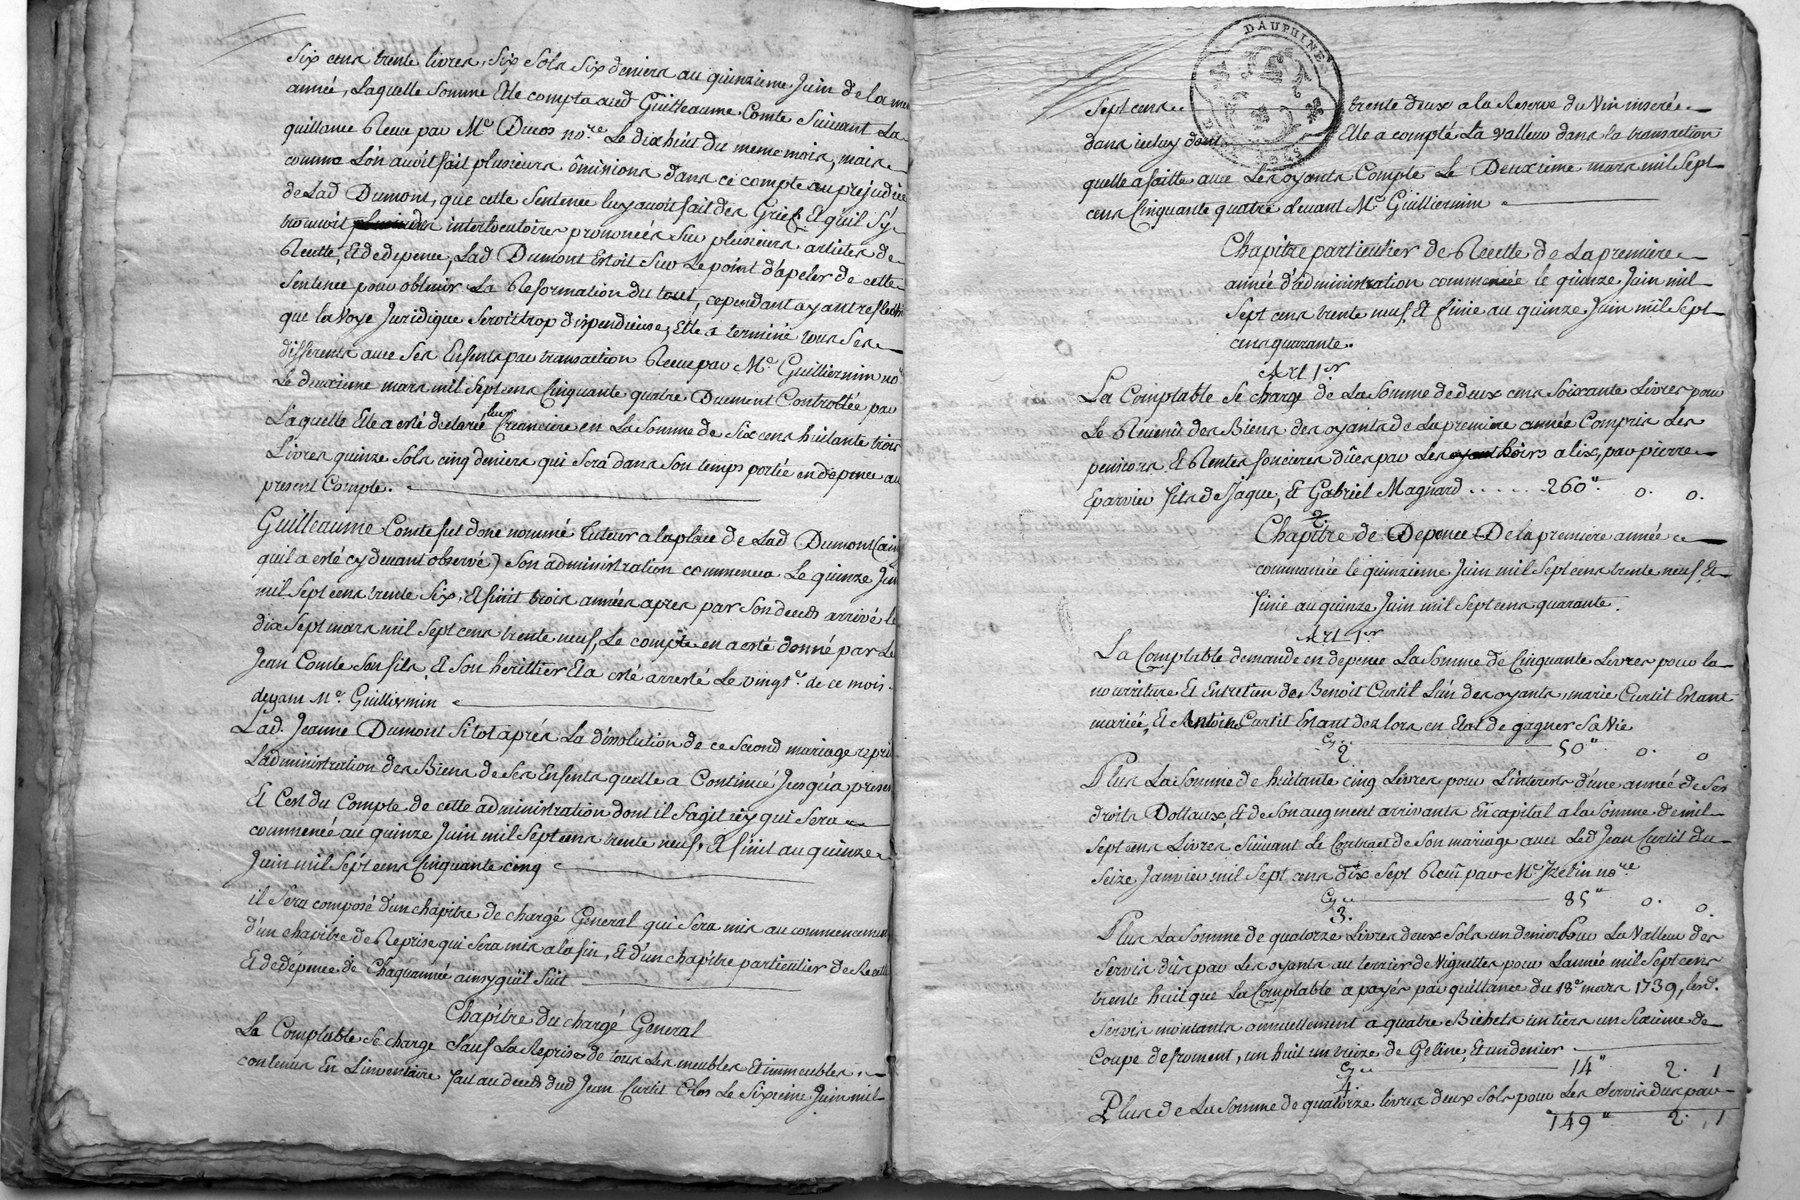 Six cens trente livres, Six Sols Six deniers au quinzieme Juin de la
année, Laquelle Somme Elle compta aud Guilleaume Comte Suivant La
quittance Recue par Me Ducos nore Le dix huit du meme mois, mais
comme L'on avoit fait plusieurs ômissions dans ce compte au préjudice
de Lad Dumont, que cette Sentence luy avoit fait des Griefs Et qu'il s'y
trouvoit des interlocutoires prononcés Sur plusieurs articles de
Recette, Et de depence, Lad Dumont Estoit Sur Le point d'apeler de cette
Sentence pour obtenir La Reformation du tout, cependant ayant reflechi
que la Voye Juridique Seroit trop dispendieuse, Elle a terminé tous Ses
differents avec Ses Enfents par transaction Recue par Me Guilliermin no
Le deuxieme mars mil Sept cens Cinquante quatre Duement Controllée par
Laquelle Elle a esté declarée leur Creanciere en La Somme de Six cens huitante trois
Livres quinze Sols cinq deniers qui Sera dans Son temps portée en depence au
present Compte.
Guilleaume Comte fut donc nommé Tuteur a la place de Lad Dumont (ain
qu'il a esté cy devant observé) Son administration commenca Le quinze Jui
mil Sept cens trente Six, Et finit trois années apres par Son deceds arrivé le
dix Sept mars mil Sept cens trente neuf, Le compte en a esté donné par Le
Jean Comte Son fils, Et Son herittier Et a esté arresté Le vingte de ce mois
devant Me Guilliermin
Lad. Jeanne Dumont Sitot après La dissolution de ce Second mariage repri
L'administration des Biens de Ses Enfents quelle a Continué Jusqu'a presen
Et C'est du Compte de cette administration dont il S'agit icy qui Sera
commencé au quinze Juin mil Sept cens trente neuf, Et finit au quinze
Juin mil Sept cens Cinquante cinq
il Sera composé d'un chapitre de chargé General qui Sera mis au commencement
d'un chapitre de Reprise qui Sera mis a la fin, Et d'un chapitre particulier de Recette
Et de dépence de Chaqu'année ainsy qu'il Suit
Chapitre du chargé General
La Comptable Se charge Sauf La Reprise de tous Les meubles Et immeubles
contenus En L'inventaire fait au deceds dud Jean Curtil Clos Le Sixieme Juin mil
Sept cens trente deux a la Reserve du Vin inserée
dans iceluy dont Elle a compté La Valleur dans la transaction
quelle a faitte avec Les oyants Compte Le Deuxieme mars mil Sept
cens Cinquante quatre devant Me Guilliermin
DAUPHINE
Chapitre particulier de Recette de La premiere
année d'administration commencée le quinze Juin mil
Sept cens trente neuf, Et finie au quinze Juin mil Sept
cens quarante.
Art 1er
La Comptable Se charge de La Somme de deux cens Soixante Livres pour
Le Revenu des Biens des oyants de La premiere année Compris Les
pensions, Et Rentes foncieres dûes par Les hoirs alix, par pierre
Eparvier fils de Jaque, Et Gabriel Magnard ..... 260" 0. 0.
Chapitre de Depence De la premiere année
commancée le quinzieme Juin mil Sept cens trente neuf, Et
finie au quinze Juin mil Sept cens quarante.
Art 1er
La Comptable demande en depence La Somme de Cinquante Livres pour la
nourriture Et Entretien de Benoit Curtil L'un des oyants, marie Curtil Estant
mariée, Et Antoine Curtil Estant dez lors en Etat de gagner Sa Vie
Cy 50" 0. 0
2
Plus La Somme de huitante cinq Livres pour L'interets d'une année de Ses
droits Dottaux, Et de Son augment arrivants En capital a la Somme de mil
Sept cens Livres Suivant Le Contract de Son mariage avec Led Jean Curtil du
Seize Janvier mil Sept cens dix Sept Recû par Me nore
Cy 85" 0. 0.
3.
Plus La Somme de quatorze Livres deux Sols un denier Pour La Valleur des
Servis dûs par Les oyants au terrier de Vignettes pour L'année mil Sept cens
trente huit que La Comptable a payés par quittance du 18e mars 1739, lesd.
Servis montants annuellement a quatre Bichets un tiers un Sixieme de
Coupe de froment, un huit un treize de Geline, Et un denier
Cy 14" 2. 1
4.
Plus de La Somme de quatorze livres deux Sols pour Les Servis dus par
149" 2. 1